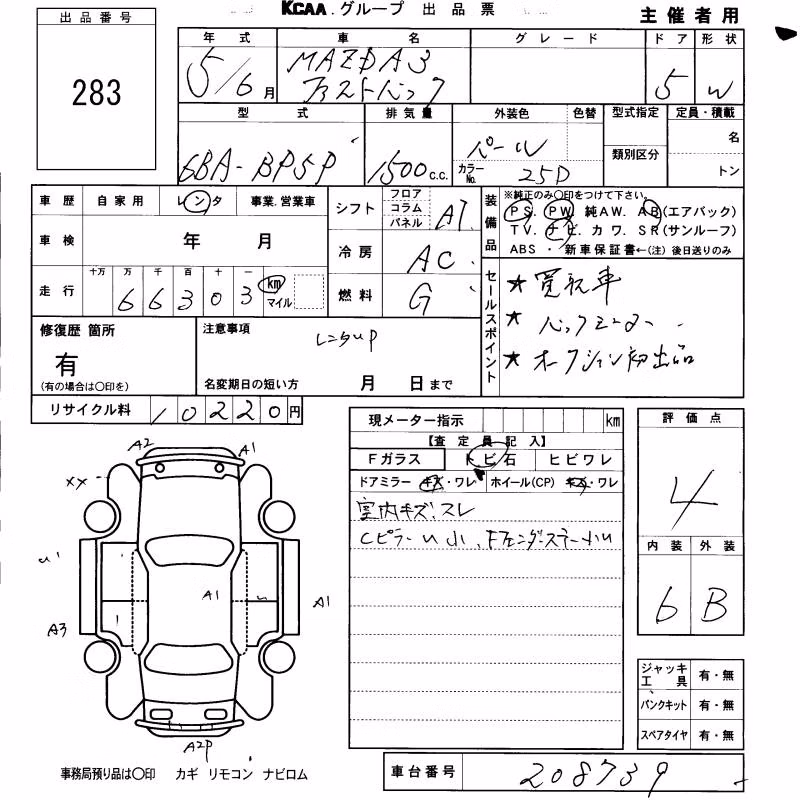 KCAA.グループ 出品票
主催者用
出品番号
283
年式 車名 グレード ドア 形状
5/6月 MAZDA3 5 W
ファストバック
型式 排気量 外装色 色替 型式指定 定員・積載
類別区分 名
6BA-BP5P 1500c.c. パール カラーNo. 25D トン
車歴 自家用 レンタ 事業.営業車
車検 年 月
走行 十万 万 千 百 十 一
66303 km マイル
シフト フロア コラム パネル AT
冷房 AC
燃料 G
装備品
※純正のみ○印をつけて下さい。
PS. PW 純AW. AB(エアバック)
TV. ナビ. カワ. SR(サンルーフ)
ABS ・ 新車保証書←(注) 後日送りのみ
セールスポイント
★ 買取車
★ バックモニター
★ オークション初出品
修復歴 箇所
有
(有の場合は○印を)
注意事項
レンタup
名変期日の短い方 月 日まで
リサイクル料 10220円
現メーター指示 km
【査定員記入】
Fガラス トビ石 ヒビワレ
ドアミラー キズ・ワレ ホイール(CP) キズ・ワレ
室内キズ、スレ
Cピラーu小、Fフェンダーステー小u
評価点
4
内装 外装
6 B
ジャッキ工具 有・無
パンクキット 有・無
スペアタイヤ 有・無
A2 A1
XX
u1
A1 A1
A3
A2P
事務局預り品は○印 カギ リモコン ナビロム
車台番号 208739